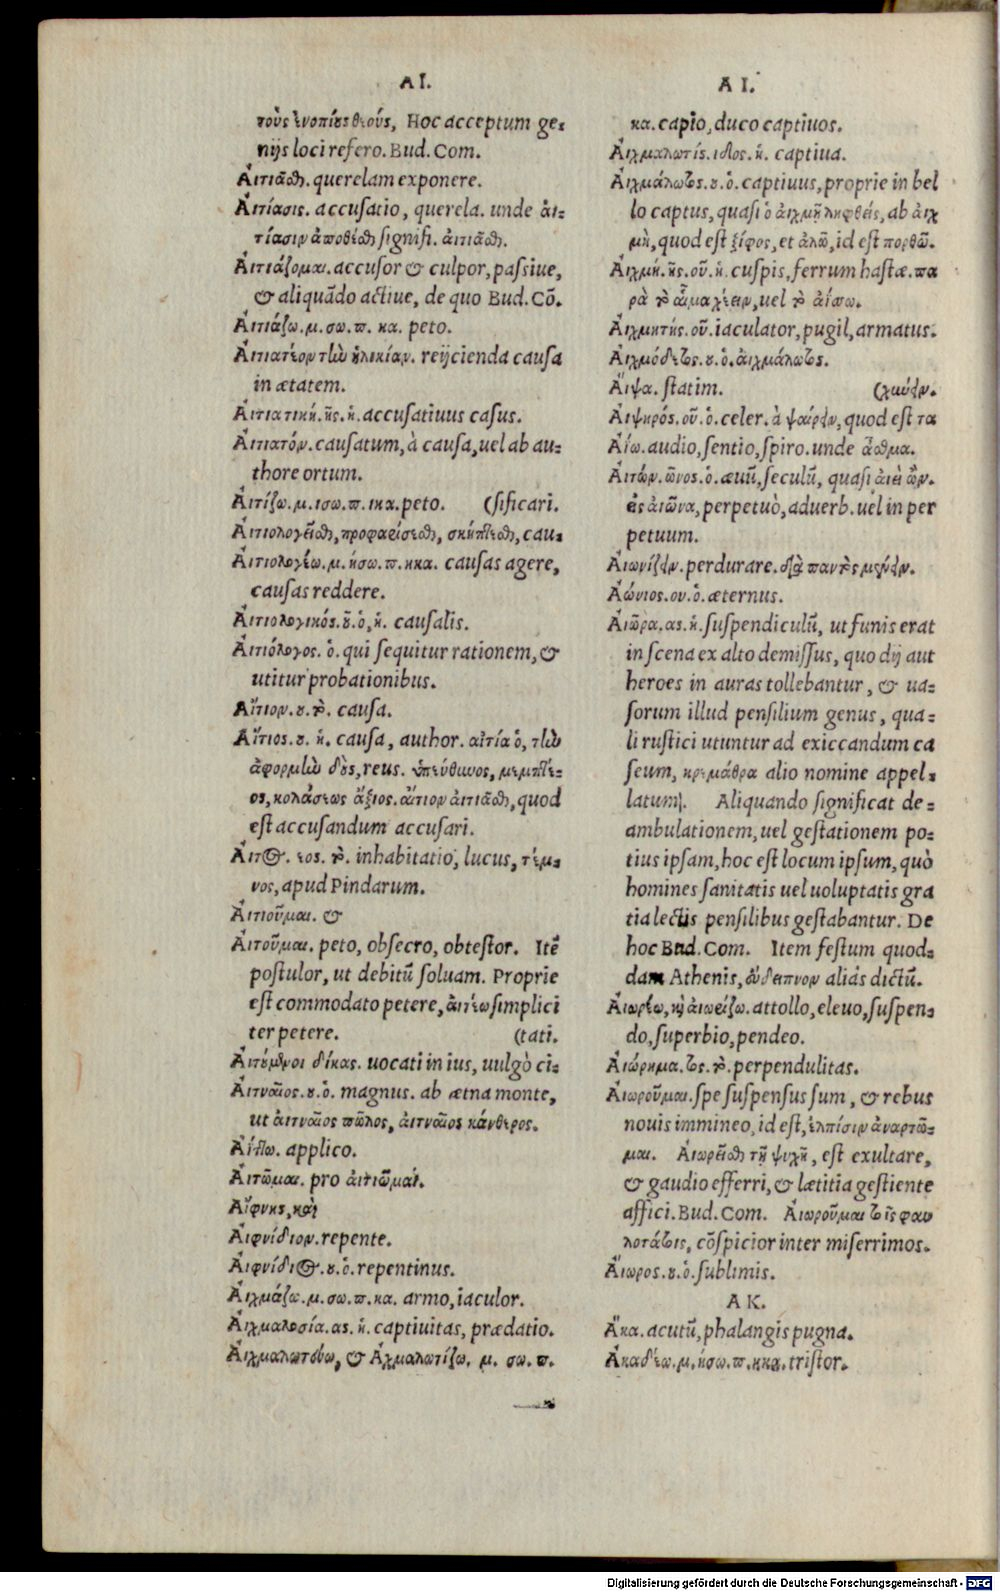 AI.
τοὺς ἐνοπίους θεούς, Hoc acceptum ge-
nijs loci refero. Bud. Com.
Αἰτιᾶσθαι. querelam exponere.
Αἰτίασις. accusatio, querela. unde αἰ-
τίασιν ἀποθέσθαι signifi. αἰτιᾶσθαι.
Αἰτιάζομαι. accusor & culpor, passiue,
& aliquãdo actiue, de quo Bud. Cõ.
Αἰτιάζω. μ. σω. π. κα. peto.
Αἰτιατέον τὴν ἡλικίαν. reijcienda causa
in ætatem.
Αἰτιατική. ῆς. ἡ. accusatiuus casus.
Αἰτιατόν. causatum, à causa, uel ab au-
thore ortum.
Αἰτίζω. μ. ισω. π. ικα. peto. (sificari.
Αἰτιολογεῖσθαι, προφασίσεσθαι, σκήπτεσθαι, cau-
Αἰτιολογέω. μ. ήσω. π. ηκα. causas agere,
causas reddere.
Αἰτιολογικός. οῦ. ὁ, ἡ. causalis.
Αἰτιόλογος. ὁ. qui sequitur rationem, &
utitur probationibus.
Αἴτιον. ου. τὸ. causa.
Αἴτιος. ου. ἡ. causa, author. αἰτία ὁ, τὴν
ἀφορμὴν δοὺς, reus. ὑπεύθυνος, μεμπτέ-
ος, κολάσεως ἄξιος. αἴτιον αἰτιᾶσθαι, quod
est accusandum accusari.
Αἶτος. εος. τὸ. inhabitatio, lucus, τέμε-
νος, apud Pindarum.
Αἰτιοῦμαι. &
Αἰτοῦμαι. peto, obsecro, obtestor. Itẽ
postulor, ut debitũ soluam. Proprie
est commodato petere, αἰτέω simplici
ter petere. (tati.
Αἰτούμενοι δίκας. uocati in ius, uulgò ci-
Αἰτναῖος. ου. ὁ. magnus. ab ætna monte,
ut αἰτναῖος πῶλος, αἰτναῖος κάνθερος.
Αἴπτω. applico.
Αἰτῶμαι. pro αἰτιῶμαι.
Αἴφνης, καὶ
Αἰφνίδιον. repente.
Αἰφνίδιος. ου. ὁ. repentinus.
Αἰχμάζω. μ. σω. π. κα. armo, iaculor.
Αἰχμαλοσία. ας. ἡ. captiuitas, prædatio.
Αἰχμαλωτεύω, & Αἰχμαλωτίζω. μ. σω. π.
AI.
κα. capio, duco captiuos.
Αἰχμαλωτίς. ιδος. ἡ. captiua.
Αἰχμάλωτος. ου. ὁ. captiuus, proprie in bel
lo captus, quasi ὁ αἰχμῇ ληφθείς, ab αἰχ
μὴ, quod est ξίφος, et ἁλῶ, id est πορθῶ.
Αἰχμή. ῆς. οῦ. ἡ. cuspis, ferrum hastæ. πα
ρὰ τὸ αἷμα χέειν, uel τὸ ἀΐσσω.
Αἰχμητής. οῦ. iaculator, pugil, armatus.
Αἰχμόδετος. ου. ὁ. αἰχμάλωτος.
Αἶψα. statim. (χιύειν.
Αἰψηρός. οῦ. ὁ. celer. à ψαίρειν, quod est τα
Αἴω. audio, sentio, spiro. unde ἆσθμα.
Αἰών. ῶνος. ὁ. æuũ, seculũ, quasi ἀιεὶ ὢν.
εἰς αἰῶνα, perpetuò, aduerb. uel in per
petuum.
Αἰωνίζειν. perdurare. διὰ παντὸς μένειν.
Αἰώνιος. ου. ὁ. æternus.
Αἰώρα. ας. ἡ. suspendiculũ, ut funis erat
in scena ex alto demissus, quo dij aut
heroes in auras tollebantur, & ua-
sorum illud pensilium genus, qua-
li rustici utuntur ad exiccandum ca
seum, κρεμάθρα alio nomine appel-
latum. Aliquando significat de-
ambulationem, uel gestationem po-
tius ipsam, hoc est locum ipsum, quò
homines sanitatis uel uoluptatis gra
tia lectis pensilibus gestabantur. De
hoc Bud. Com. Item festum quod-
dam Athenis, εὔδειπνον aliàs dictũ.
Αἰωρέω, καὶ αἰωρίζω. attollo, eleuo, suspen-
do, superbio, pendeo.
Αἰώρημα. τος. τὸ. perpendulitas.
Αἰωροῦμαι. spe suspensus sum, & rebus
nouis immineo, id est, ἐλπίσιν ἀναρτῶ-
μαι. Αἰωρεῖσθαι τῇ ψυχῇ, est exultare,
& gaudio efferri, & lætitia gestiente
affici. Bud. Com. Αἰωροῦμαι τοῖς φαυ
λοτάτοις, cõspicior inter miserrimos.
Αἴωρος. ου. ὁ. sublimis.
AK.
Ἄκα. acutũ, phalangis pugna.
Ἀκαδέω. μ. ήσω. π. ηκα. tristor.
Digitalisierung gefördert durch die Deutsche Forschungsgemeinschaft - DFG